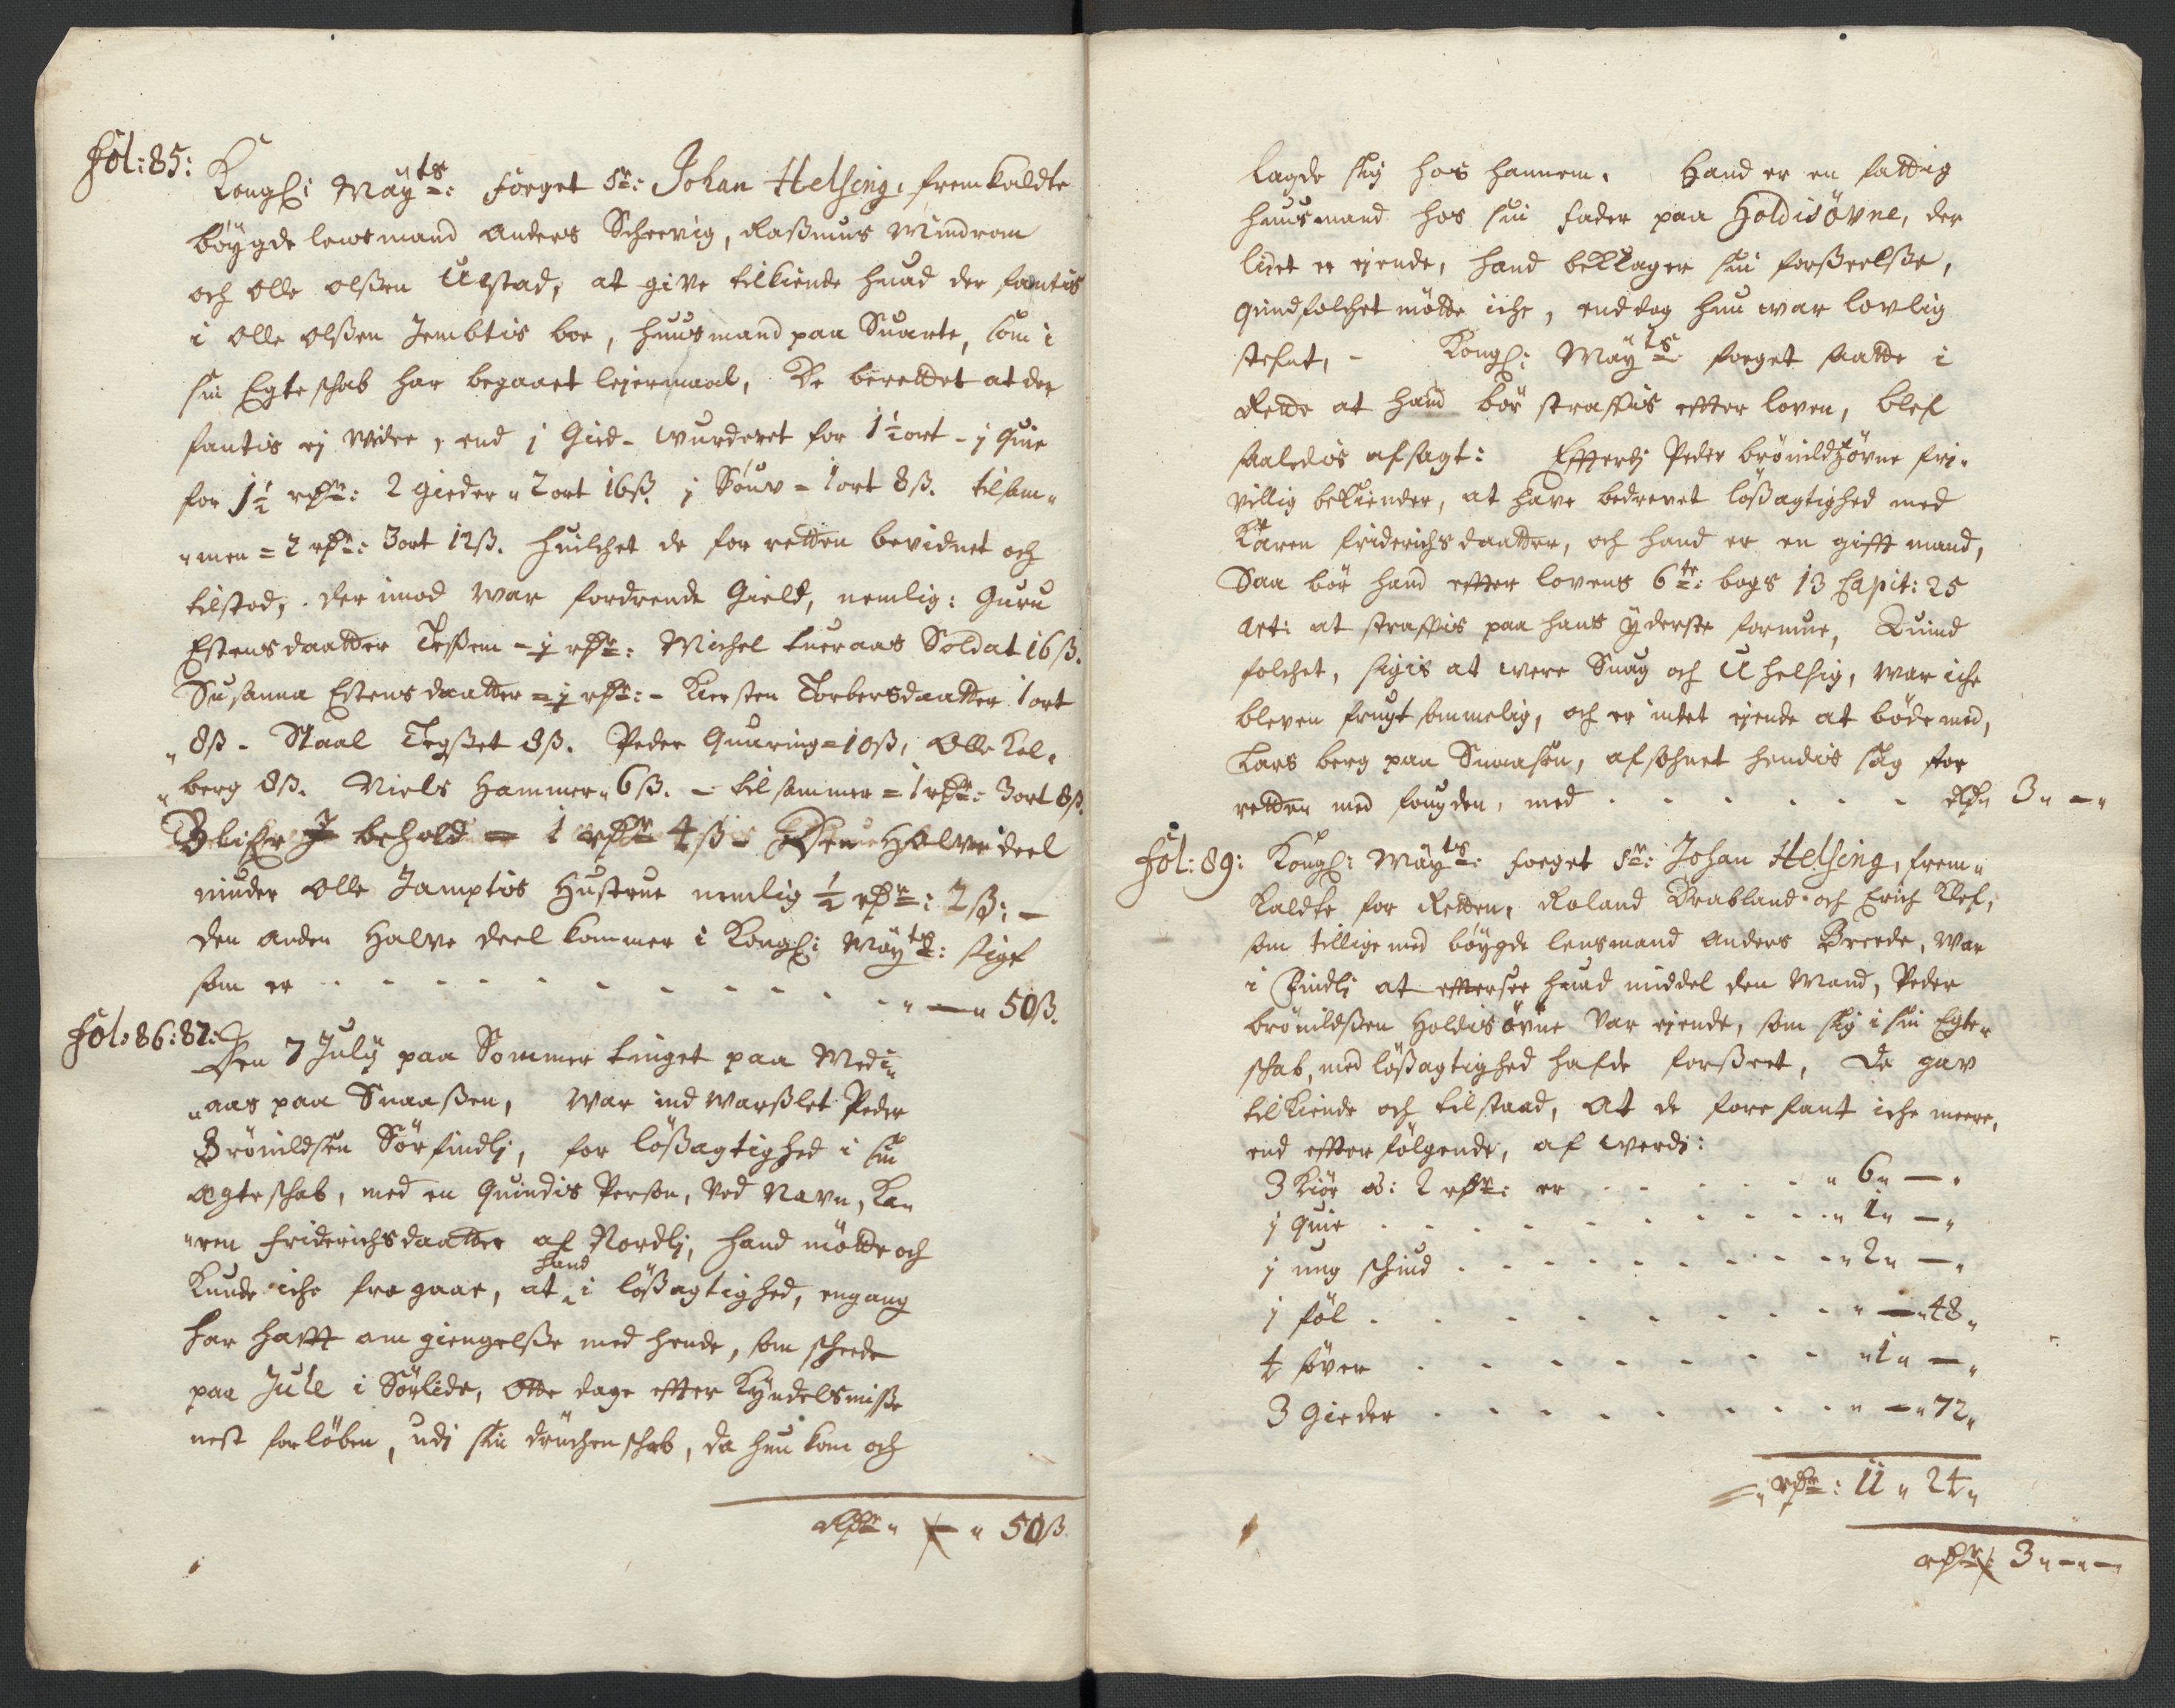 Fol: 85:
Kongl: Mäytz: Foeget Sr: Johan Helsing, fremkaldte
böygde lensmand Anders Scheevig, Rasmus Mindrom
och Olle Olßen Ulstad, at give tilkiende huad der fantis
i Olle Olßen Jembtis boe, huusmand paa Suarte, som i
sin Egteschab har begaaet leiermaal, De berettet at der
fantis ej videre, end j Gied - vurderet for 1½ ort - j Quie
for 1½ rdr: 2 gieder " 2 ort 16ß. j Souv = 1 ort 8ß. tilsam"
"men = 2 rdr: 3 ort 12ß. huilchet de for retten bevidnet och
tilstod, der imod war fordrende Gield, nemlig: Guru
Estensdaatter Teßem - j rdr: Michel Lueraas Soldat 16ß.
Susanna Estensdaatter = j rdr: - Kiersten Torbersdaatter 1 ort
" 8ß - Staal Tegßet 8ß. Peder Quuring = 10ß, Olle Kel"
"berg 8ß. Niels Hammer " 6ß. - tilsammen = 1 rdr: 3 ort 8ß.
Blifver J behold = 1 rdr 4ß - Den Halve deel
niuder Olle Jamptis Hustrue nemlig ½ rdr: 2ß; -
den anden Halve deel kommer i Kongl: Mäytz:
som er . . . . . . . . " — " 50ß.
Fol: 86: 87:
Den 7 Julij paa Sommer tinget paa Medi"
"aas paa Snaaßen, War ind warßlet Peder
Brönildsen Sörfindlj, for lößagtighed i sin
ægteschab, med en Quindis Person, ved Navn, Ka"
"ren Friderichsdaatter af Nordlj, hand mötte och
kunde iche fragaae, at hand i lößagtighed, engang
har hafft omgiengelße med hende, som scheede
paa Jule i Sörlide, Otte dage effter Kyndelsmiße
nest forlöben, udj sin druchenschab, da hun kom och
rdr " — " 50ß

lagde sig hos hannem. Hand er en fattig
huusmand hos sin fader paa Holdisövne, der
lidet er ejende, hand beklager sin forßeelße,
quindfolchet mötte iche, enddog hun war lovlig
stefnt, - Kongl: Mäytz foeget satte i
Rette at hand bör straffis effter loven, blef
saaledis afsagt: Effterdj Peder brönildßövne fri"
villig bekiender, at have bedrevet lößagtighed med
Karen Friderichsdaatter, och hand er en gifft mand,
Saa bör hand effter lovens 6te: bogs 13 Capit: 25
Art: at straffis paa hans yderste formue, Quind
folchet, sigis at were Suag och Uhelsig, war iche
bleven frugtsommelig, och er intet ejende at böde med,
Lars berg paa Snaasen, afsohnet hendis sag for
retten med fougden, med . . . . . . rdr 3 " — "
Fol: 89: Kongl: Mäytz: foeget Sr: Johan Helsing, frem"
kaldte for Retten, Roland Brabland och Erich Klef,
som tillige med böygde lensmand Anders Breede, War
i Findlj at effterßee huad middel den Mand, Peder
brönildßen Holdisövne var ejende, som sig i sin Egte"
schab, med lößagtighed hafde forßeet, De gav
tilkiende och tilstaad, At de forefant iche meere,
end effterfölgende, af werdj:
3 Kiör á: 2 rdr: er . . . . . " 6 " — "
j quie . . . . . . . . " 1 " — "
j ung schiud . . . . . . . " 2 " — "
j föl . . . . . . . . " — " 48 "
4 söver . . . . . . . " 1 " — "
3 Gieder . . . . . . . " — " 72 "
= " rdr: 11 " 24 "
rdr: 3 " — " —